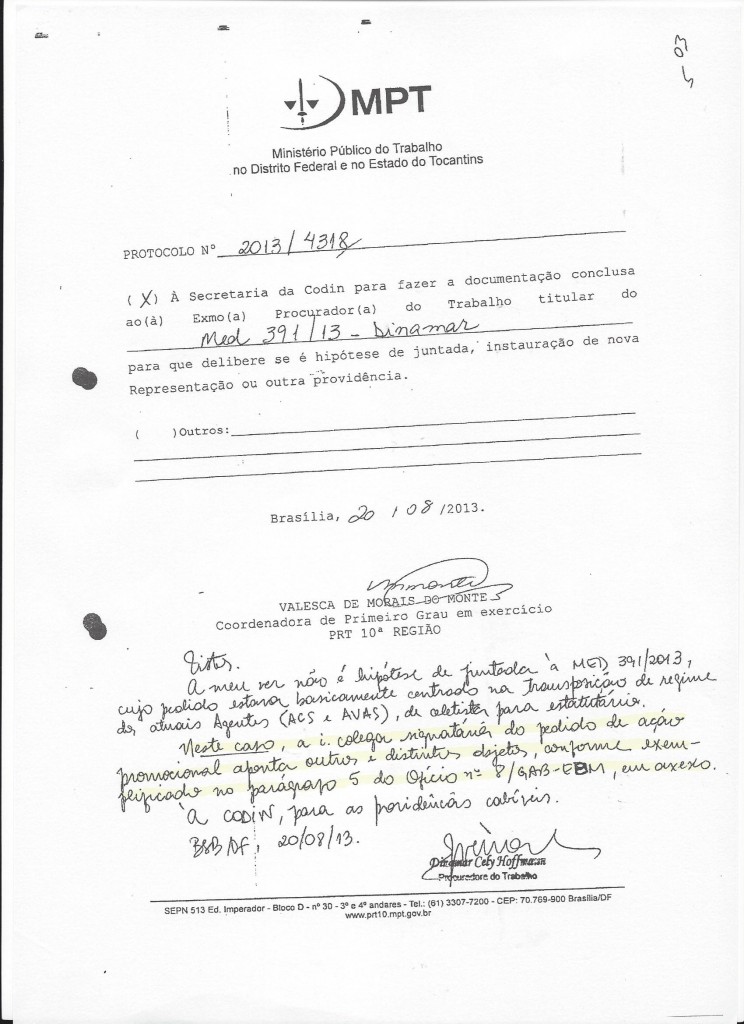 03
MPT
Ministério Público do Trabalho
no Distrito Federal e no Estado do Tocantins
PROTOCOLO Nº 2013/4318
(X) À Secretaria da Codin para fazer a documentação conclusa
ao(à) Exmo(a) Procurador(a) do Trabalho titular do
Med 391/13 - Dinamar
para que delibere se é hipótese de juntada, instauração de nova
Representação ou outra providência.
( )Outros:
Brasília, 20 / 08 /2013.
VALESCA DE MORAIS DO MONTE
Coordenadora de Primeiro Grau em exercício
PRT 10ª REGIÃO
Vistos.
A meu ver não é hipótese de juntada à MED 391/2013,
cujo pedido estava basicamente centrado na transposição de regime
dos atuais Agentes (ACS e AVAS), de celetista para estatutário.
Neste caso, a i. colega signatária do pedido de ação
promocional aponta outros e distintos objetos, conforme exem-
plificado no parágrafo 5 do Ofício nº 8/GAB-EBM, em anexo.
À CODIN, para as providências cabíveis.
BSB/DF, 20/08/13.
Dinamar Cely Hoffmann
Procuradora do Trabalho
SEPN 513 Ed. Imperador - Bloco D - nº 30 - 3º e 4º andares - Tel.: (61) 3307-7200 - CEP: 70.769-900 Brasília/DF
www.prt10.mpt.gov.br